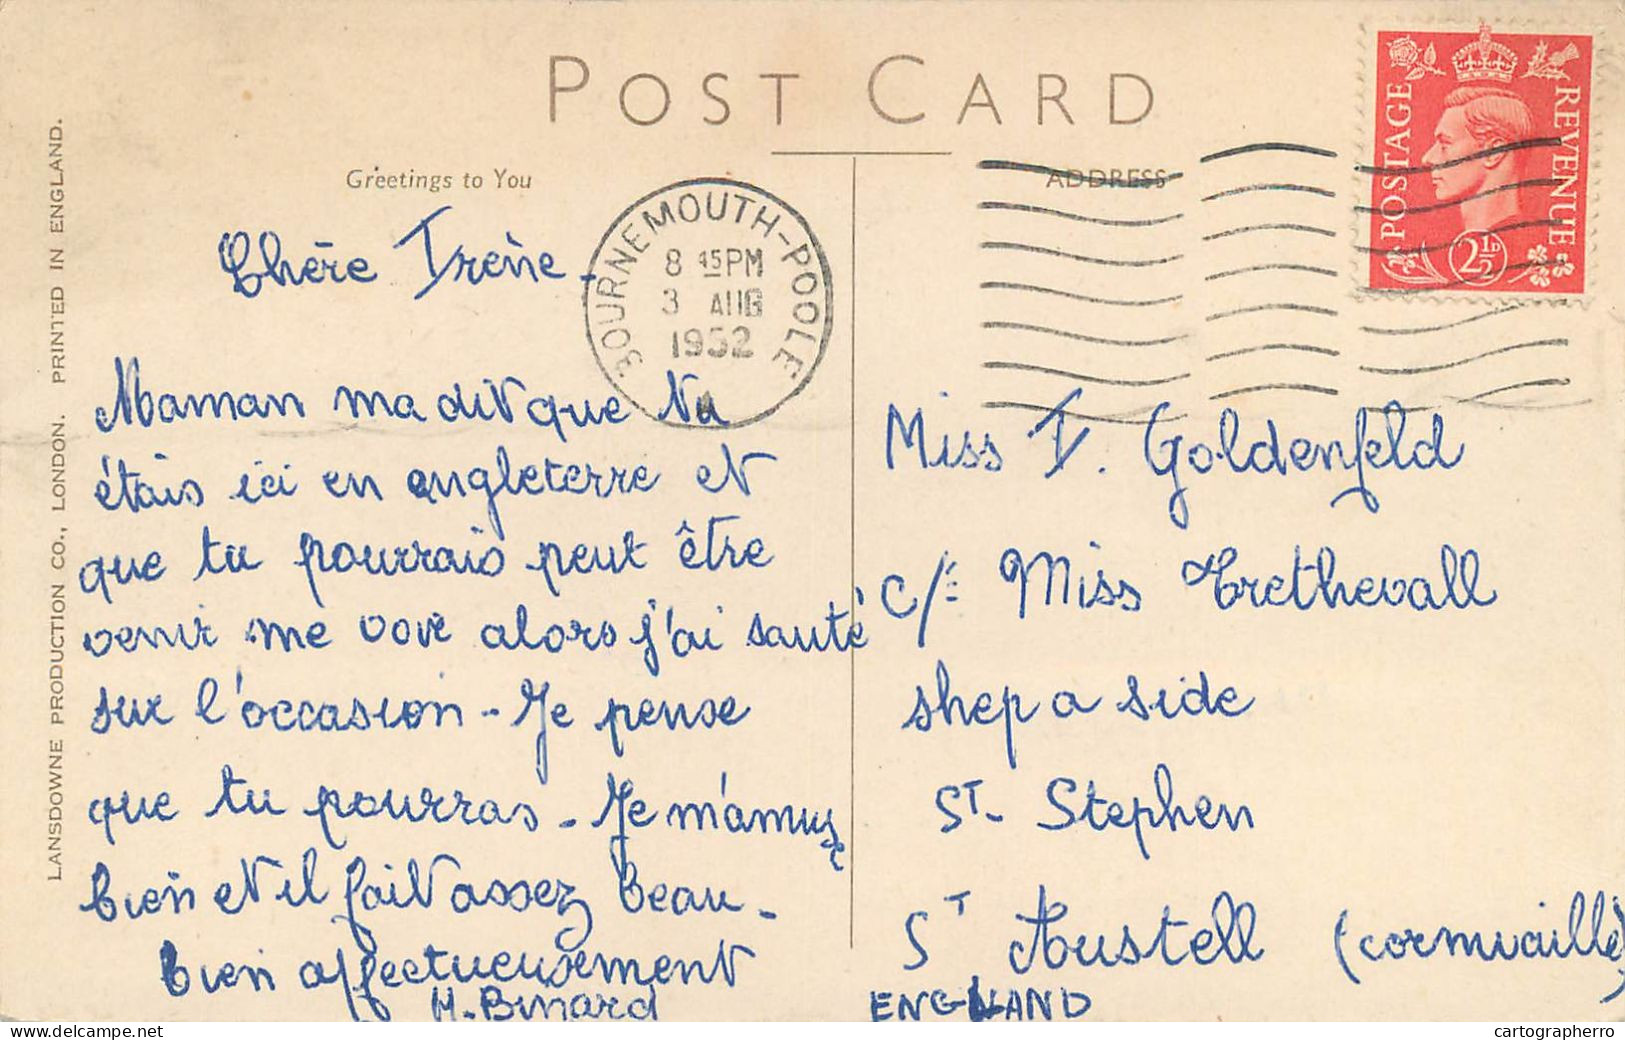 POST CARD
Greetings to You
ADDRESS
POSTAGE REVENUE
2½D
BOURNEMOUTH-POOLE
8 45PM
3 AUG
1952
LANSDOWNE PRODUCTION CO., LONDON. PRINTED IN ENGLAND.
Chère Irène-
Maman ma dit que tu
étais ici en angleterre et
que tu pourrais peut être
venir me voir alors j'ai sauté
sur l'occasion - Je pense
que tu pourras - Je m'amuse
bien et il fait assez beau -
bien affectueusement
M. Binard
Miss I. Goldenfeld
c/: Miss Trethevall
shep a side
ST- Stephen
ST Austell (cornwaille)
ENGLAND
cartographerro